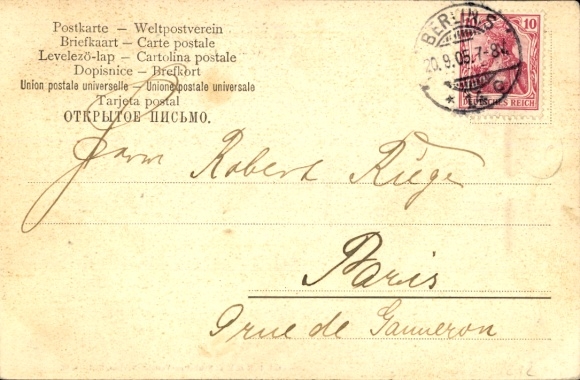 Postkarte – Weltpostverein
Briefkaart – Carte postale
Levelező-lap – Cartolina postale
Dopisnice – Brefkort
Union postale universelle – Unione postale universale
Tarjeta postal
ОТКРЫТОЕ ПИСЬМО.
BERLIN S
20.9.05. 7-8
10
DEUTSCHES REICH
Herrn Robert Riege
Paris
rue de Ganneron